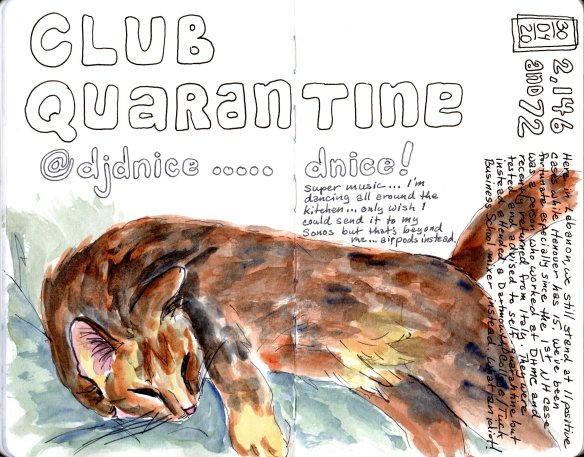 CLUB
QUARANTINE
@djdnice ..... dnice!
super music... I'm
dancing all around the
kitchen... only wish I
could send it to my
Sonos but thats beyond
me... airpods instead.
30
04
20
2,146
and 72
Here in Lebanon, we still stand at 11 positive
cases while Hanover has 15. We've been
fortunate especially since the 1st NH case
was a person who worked at DHMC and
recently returned from Italy. They were
tested and advised to self quarantine but
instead attended a Dartmouth College Tuck
Business School mixer instead. What an idiot!